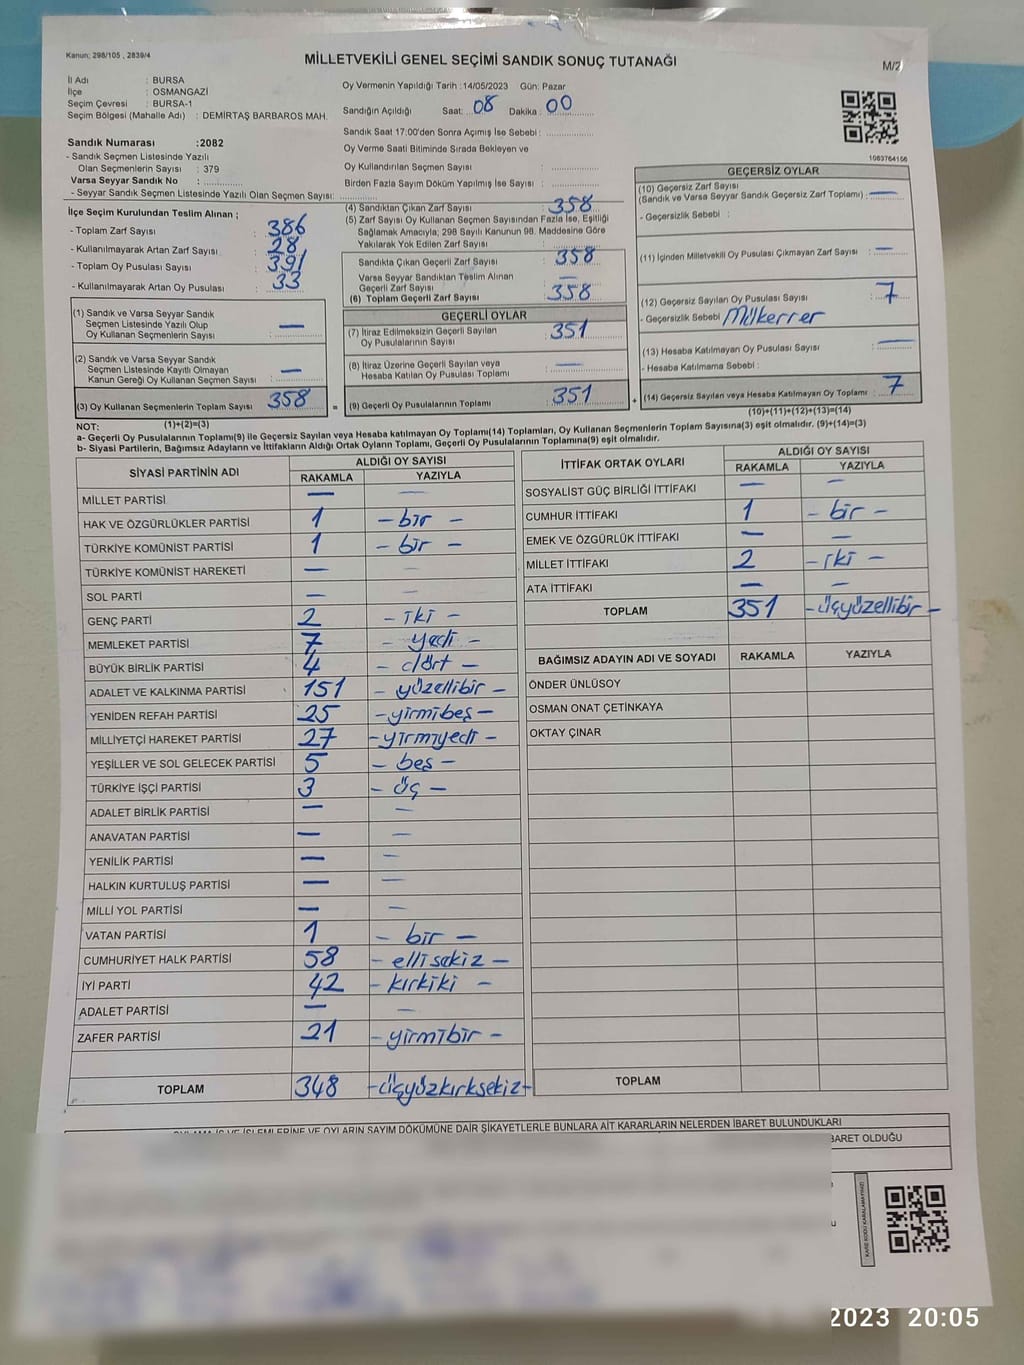 Kanun; 298/105 , 2839/4
MİLLETVEKİLİ GENEL SEÇİMİ SANDIK SONUÇ TUTANAĞI
M/2
İl Adı : BURSA
İlçe : OSMANGAZİ
Seçim Çevresi : BURSA-1
Seçim Bölgesi (Mahalle Adı) : DEMİRTAŞ BARBAROS MAH.
Oy Vermenin Yapıldığı Tarih :14/05/2023 Gün: Pazar
Sandığın Açıldığı Saat: 08 Dakika : 00
Sandık Saat 17:00'den Sonra Açımış İse Sebebi :
Oy Verme Saati Bitiminde Sırada Bekleyen ve
Oy Kullandırılan Seçmen Sayısı :
Birden Fazla Sayım Döküm Yapılmış İse Sayısı :
Sandık Numarası :2082
- Sandık Seçmen Listesinde Yazılı
Olan Seçmenlerin Sayısı : 379
Varsa Seyyar Sandık No :
- Seyyar Sandık Seçmen Listesinde Yazılı Olan Seçmen Sayısı:
İlçe Seçim Kurulundan Teslim Alınan ;
- Toplam Zarf Sayısı : 386
- Kullanılmayarak Artan Zarf Sayısı : 28
- Toplam Oy Pusulası Sayısı : 391
- Kullanılmayarak Artan Oy Pusulası : 33
(1) Sandık ve Varsa Seyyar Sandık
Seçmen Listesinde Yazılı Olup
Oy Kullanan Seçmenlerin Sayısı : —
(2) Sandık ve Varsa Seyyar Sandık
Seçmen Listesinde Kayıtlı Olmayan
Kanun Gereği Oy Kullanan Seçmen Sayısı : —
(3) Oy Kullanan Seçmenlerin Toplam Sayısı 358
(1)+(2)=(3)
(4) Sandıktan Çıkan Zarf Sayısı : 358
(5) Zarf Sayısı Oy Kullanan Seçmen Sayısından Fazla İse, Eşitliği
Sağlamak Amacıyla; 298 Sayılı Kanunun 98. Maddesine Göre
Yakılarak Yok Edilen Zarf Sayısı :
Sandıkta Çıkan Geçerli Zarf Sayısı : 358
Varsa Seyyar Sandıktan Teslim Alınan
Geçerli Zarf Sayısı : —
(6) Toplam Geçerli Zarf Sayısı : 358
GEÇERLİ OYLAR
(7) İtiraz Edilmeksizin Geçerli Sayılan
Oy Pusulalarının Sayısı : 351
(8) İtiraz Üzerine Geçerli Sayılan veya
Hesaba Katılan Oy Pusulası Toplamı : —
= (9) Geçerli Oy Pusulalarının Toplamı : 351
1083764156
GEÇERSİZ OYLAR
(10) Geçersiz Zarf Sayısı
(Sandık ve Varsa Seyyar Sandık Geçersiz Zarf Toplamı) : —
- Geçersizlik Sebebi :
(11) İçinden Milletvekili Oy Pusulası Çıkmayan Zarf Sayısı : —
(12) Geçersiz Sayılan Oy Pusulası Sayısı : 7
- Geçersizlik Sebebi
(13) Hesaba Katılmayan Oy Pusulası Sayısı : —
- Hesaba Katılmama Sebebi :
+ (14) Geçersiz Sayılan veya Hesaba Katılmayan Oy Toplamı : 7
(10)+(11)+(12)+(13)=(14)
NOT:
a- Geçerli Oy Pusulalarının Toplamı(9) ile Geçersiz Sayılan veya Hesaba katılmayan Oy Toplamı(14) Toplamları, Oy Kullanan Seçmenlerin Toplam Sayısına(3) eşit olmalıdır. (9)+(14)=(3)
b- Siyasi Partilerin, Bağımsız Adayların ve İttifakların Aldığı Ortak Oyların Toplamı, Geçerli Oy Pusulalarının Toplamına(9) eşit olmalıdır.
SİYASİ PARTİNİN ADI ALDIĞI OY SAYISI
RAKAMLA YAZIYLA
MİLLET PARTİSİ — —
HAK VE ÖZGÜRLÜKLER PARTİSİ 1 - bir -
TÜRKİYE KOMÜNİST PARTİSİ 1 - bir -
TÜRKİYE KOMÜNİST HAREKETİ — —
SOL PARTİ — —
GENÇ PARTİ 2 - iki -
MEMLEKET PARTİSİ 7 - yedi -
BÜYÜK BİRLİK PARTİSİ 4 - dört -
ADALET VE KALKINMA PARTİSİ 151 - yüzellibir -
YENİDEN REFAH PARTİSİ 25 - yirmibeş -
MİLLİYETÇİ HAREKET PARTİSİ 27 - yirmiyedi -
YEŞİLLER VE SOL GELECEK PARTİSİ 5 - beş -
TÜRKİYE İŞÇİ PARTİSİ 3 - üç -
ADALET BİRLİK PARTİSİ — —
ANAVATAN PARTİSİ — —
YENİLİK PARTİSİ — —
HALKIN KURTULUŞ PARTİSİ — —
MİLLİ YOL PARTİSİ — —
VATAN PARTİSİ 1 - bir -
CUMHURİYET HALK PARTİSİ 58 - ellisekiz -
İYİ PARTİ 42 - kırkiki -
ADALET PARTİSİ — —
ZAFER PARTİSİ 21 - yirmibir -
TOPLAM 348 - üçyüzkırksekiz -
İTTİFAK ORTAK OYLARI ALDIĞI OY SAYISI
RAKAMLA YAZIYLA
SOSYALİST GÜÇ BİRLİĞİ İTTİFAKI — —
CUMHUR İTTİFAKI 1 - bir -
EMEK VE ÖZGÜRLÜK İTTİFAKI — —
MİLLET İTTİFAKI 2 - iki -
ATA İTTİFAKI — —
TOPLAM 351 - üçyüzellibir -
BAĞIMSIZ ADAYIN ADI VE SOYADI RAKAMLA YAZIYLA
ÖNDER ÜNLÜSOY
OSMAN ONAT ÇETİNKAYA
OKTAY ÇINAR
TOPLAM
İŞLEMLERİNE VE OYLARIN SAYIM DÖKÜMÜNE DAİR ŞİKAYETLERLE BUNLARA AİT KARARLARIN NELERDEN İBARET BULUNDUKLARI
BARET OLDUĞU
KARE KODU KARALAMAYINIZ!
2023 20:05